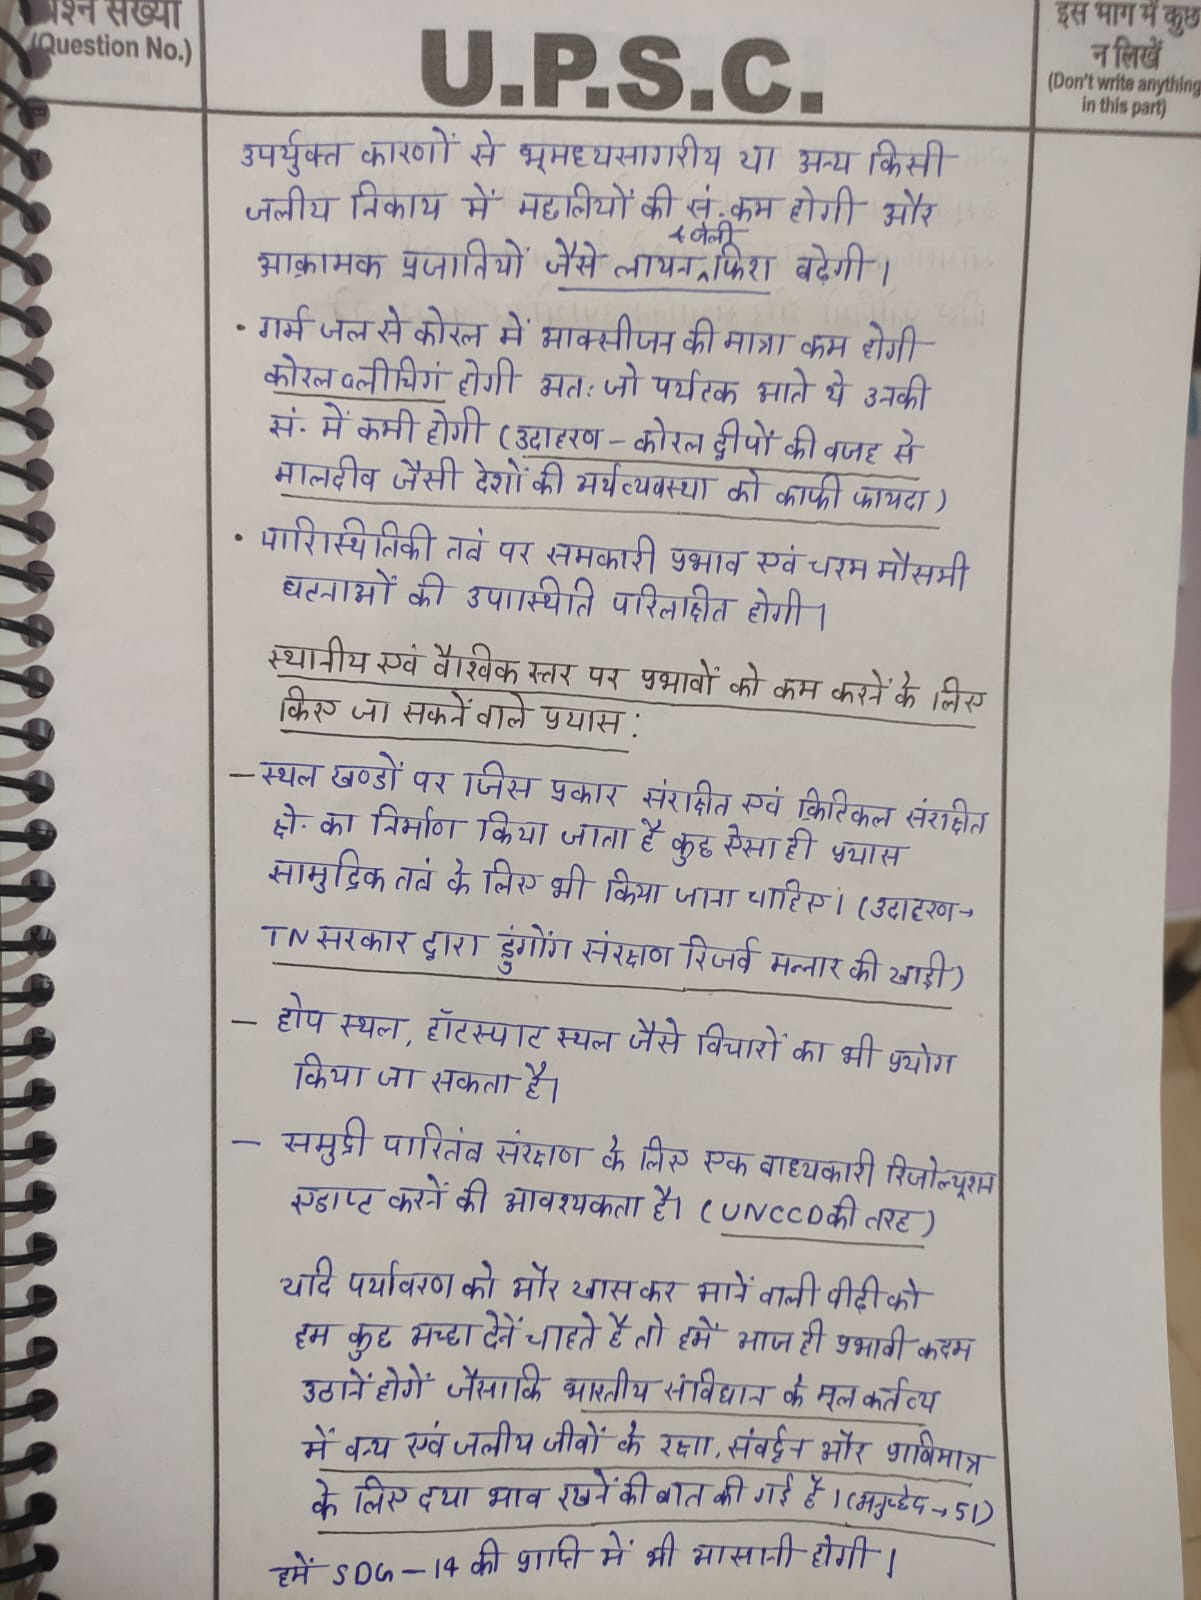 प्रश्न संख्या
(Question No.)
U.P.S.C.
इस भाग में कुछ
न लिखें
(Don't write anything
in this part)
उपर्युक्त कारणों से भूमध्यसागरीय या अन्य किसी
जलीय निकाय में मछलियों की सं. कम होगी और
& जेली
आक्रामक प्रजातियों जैसे लायन फिश बढ़ेगी।
• गर्म जल से कोरल में आक्सीजन की मात्रा कम होगी
कोरल ब्लीचिंग होगी अतः जो पर्यटक आते थे उनकी
सं. में कमी होगी (उदाहरण - कोरल द्वीपों की वजह से
मालदीव जैसी देशों की अर्थव्यवस्था को काफी फायदा)
• पारिस्थितिकी तंत्र पर समकारी प्रभाव एवं चरम मौसमी
घटनाओं की उपस्थिति परिलक्षित होगी।
स्थानीय एवं वैश्विक स्तर पर प्रभावों को कम करनें के लिए
किए जा सकनें वाले प्रयास :
- स्थल खण्डों पर जिस प्रकार संरक्षित एवं क्रिटिकल संरक्षित
क्षे. का निर्माण किया जाता है कुछ ऐसा ही प्रयास
सामुद्रिक तंत्र के लिए भी किया जाना चाहिए। (उदाहरण→
TN सरकार द्वारा डुंगोंग संरक्षण रिजर्व मन्नार की खाड़ी)
- होप स्थल, हॉटस्पाट स्थल जैसे विचारों का भी प्रयोग
किया जा सकता है।
- समुद्री पारितंत्र संरक्षण के लिए एक बाध्यकारी रिजोल्यूशन
एडाप्ट करनें की आवश्यकता है। (UNCCD की तरह)
यदि पर्यावरण को और खासकर आनें वाली पीढ़ी को
हम कुछ अच्छा देनें चाहते है तो हमें आज ही प्रभावी कदम
उठानें होगें जैसाकि भारतीय संविधान के मूल कर्तव्य
में वन्य एवं जलीय जीवों के रक्षा, संवर्द्धन और प्राणिमात्र
के लिए दया भाव रखनें की बात की गई है। (अनुच्छेद→51)
हमें SDG-14 की प्राप्ति में भी आसानी होगी।